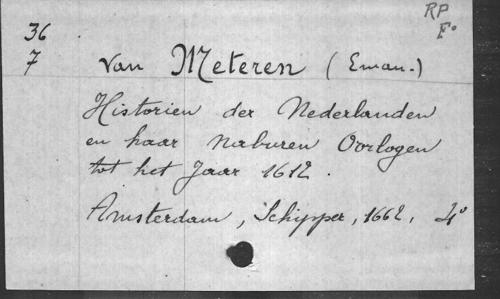 RP
F°
36
7
van Meteren (Eman.)
Historien der Nederlanden
en haar naburen Oorlogen
tot het Jaar 1612.
Amsterdam, Schipper, 1662, 4°